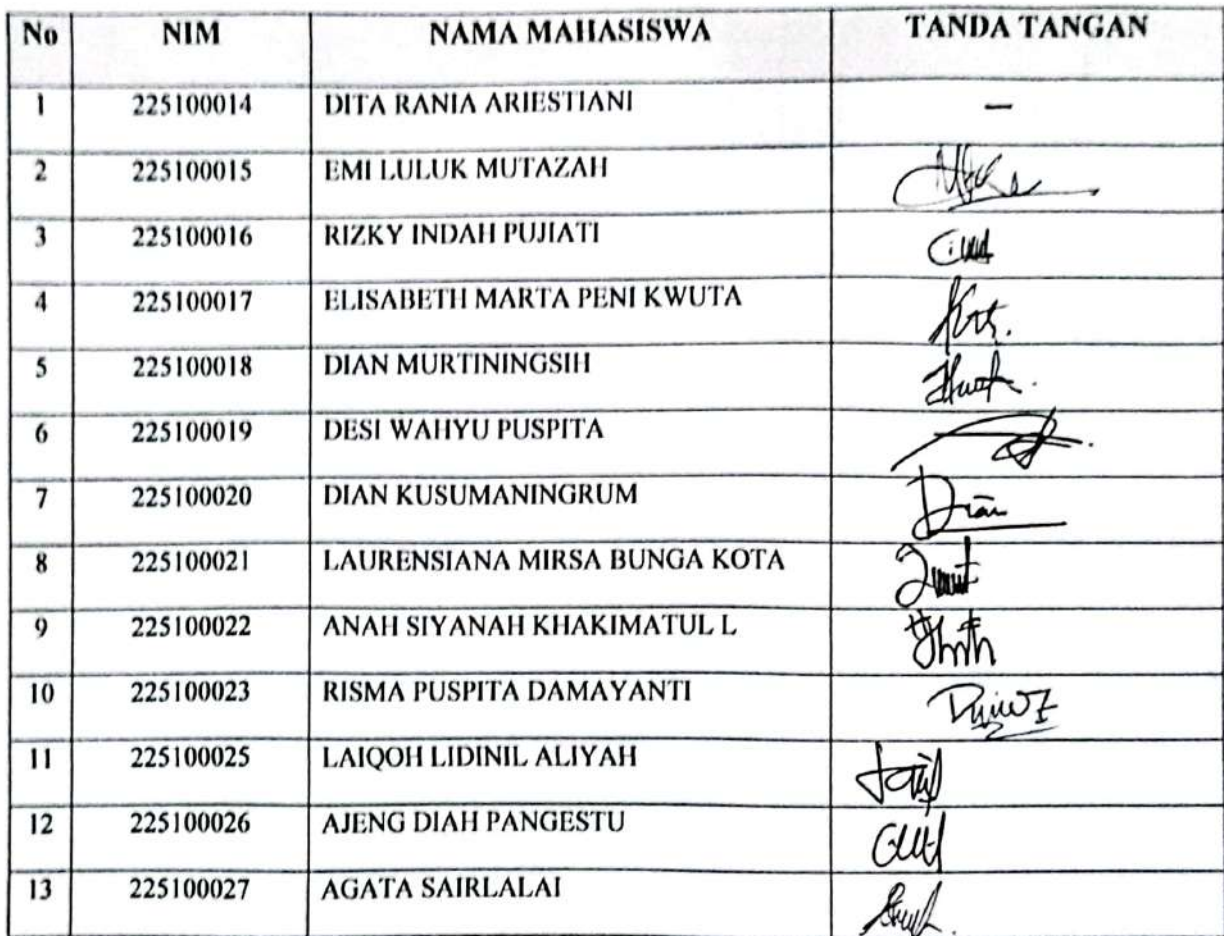 No NIM NAMA MAHASISWA TANDA TANGAN
1 225100014 DITA RANIA ARIESTIANI –
2 225100015 EMI LULUK MUTAZAH
3 225100016 RIZKY INDAH PUJIATI
4 225100017 ELISABETH MARTA PENI KWUTA
5 225100018 DIAN MURTININGSIH
6 225100019 DESI WAHYU PUSPITA
7 225100020 DIAN KUSUMANINGRUM Dian
8 225100021 LAURENSIANA MIRSA BUNGA KOTA
9 225100022 ANAH SIYANAH KHAKIMATUL L
10 225100023 RISMA PUSPITA DAMAYANTI
11 225100025 LAIQOH LIDINIL ALIYAH
12 225100026 AJENG DIAH PANGESTU
13 225100027 AGATA SAIRLALAI